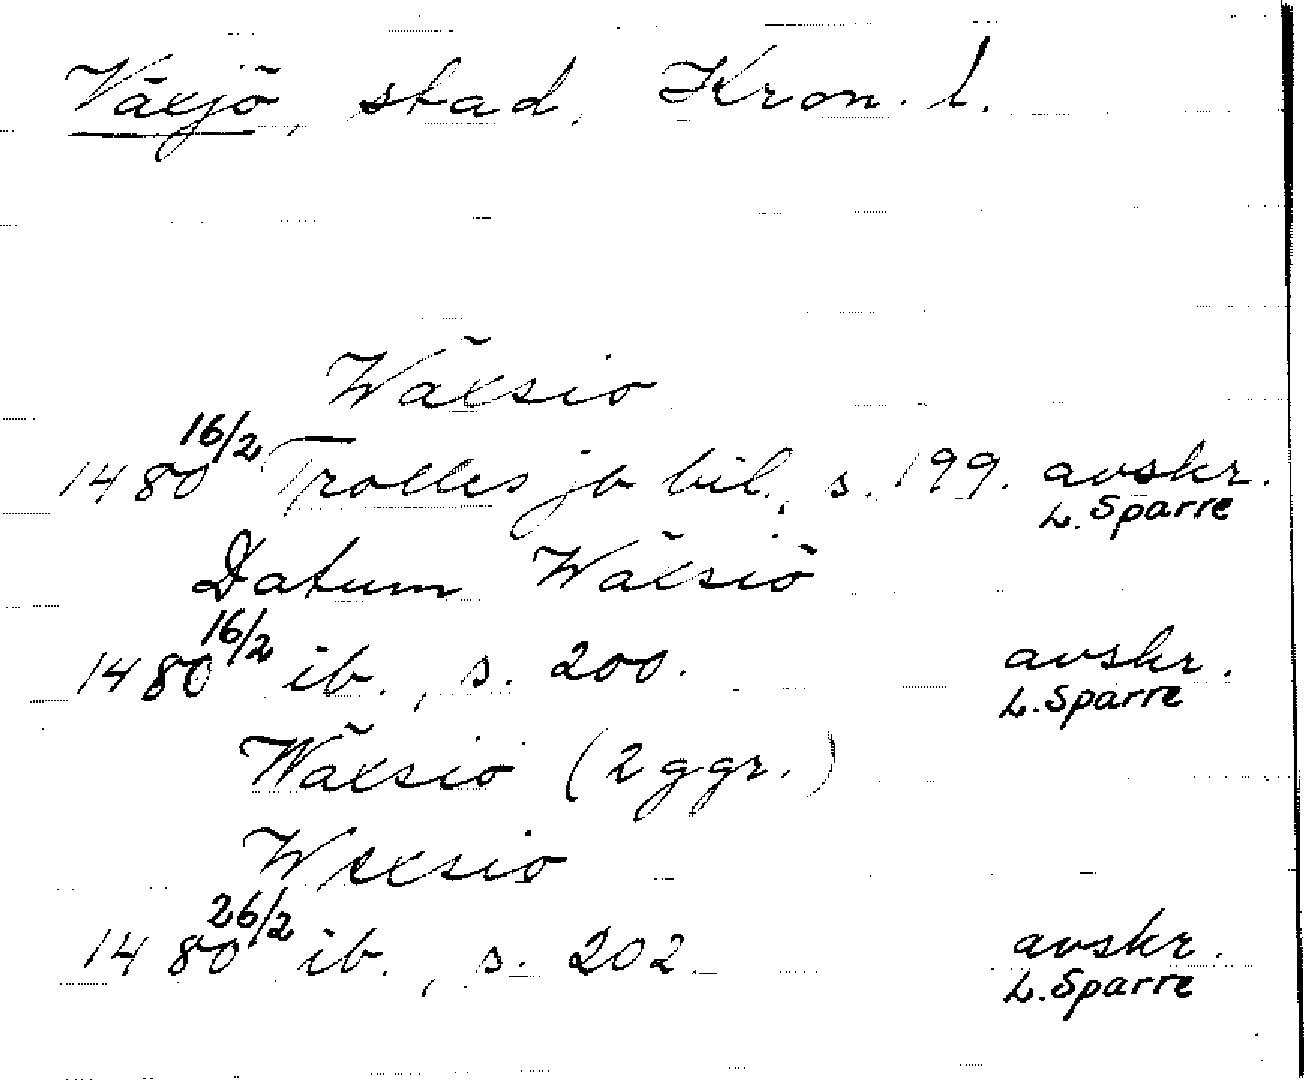 Växjö, stad, Kron. l.
Wäxsio
1480 16/2 Trolles jb bil., s. 199. avskr. L. Sparre
Datum Wäxsiö
1480 16/2 ib., s. 200. avskr. L. Sparre
Wäxsiö (2 ggr.)
Wexsio
1480 26/2 ib., s. 202. avskr. L. Sparre